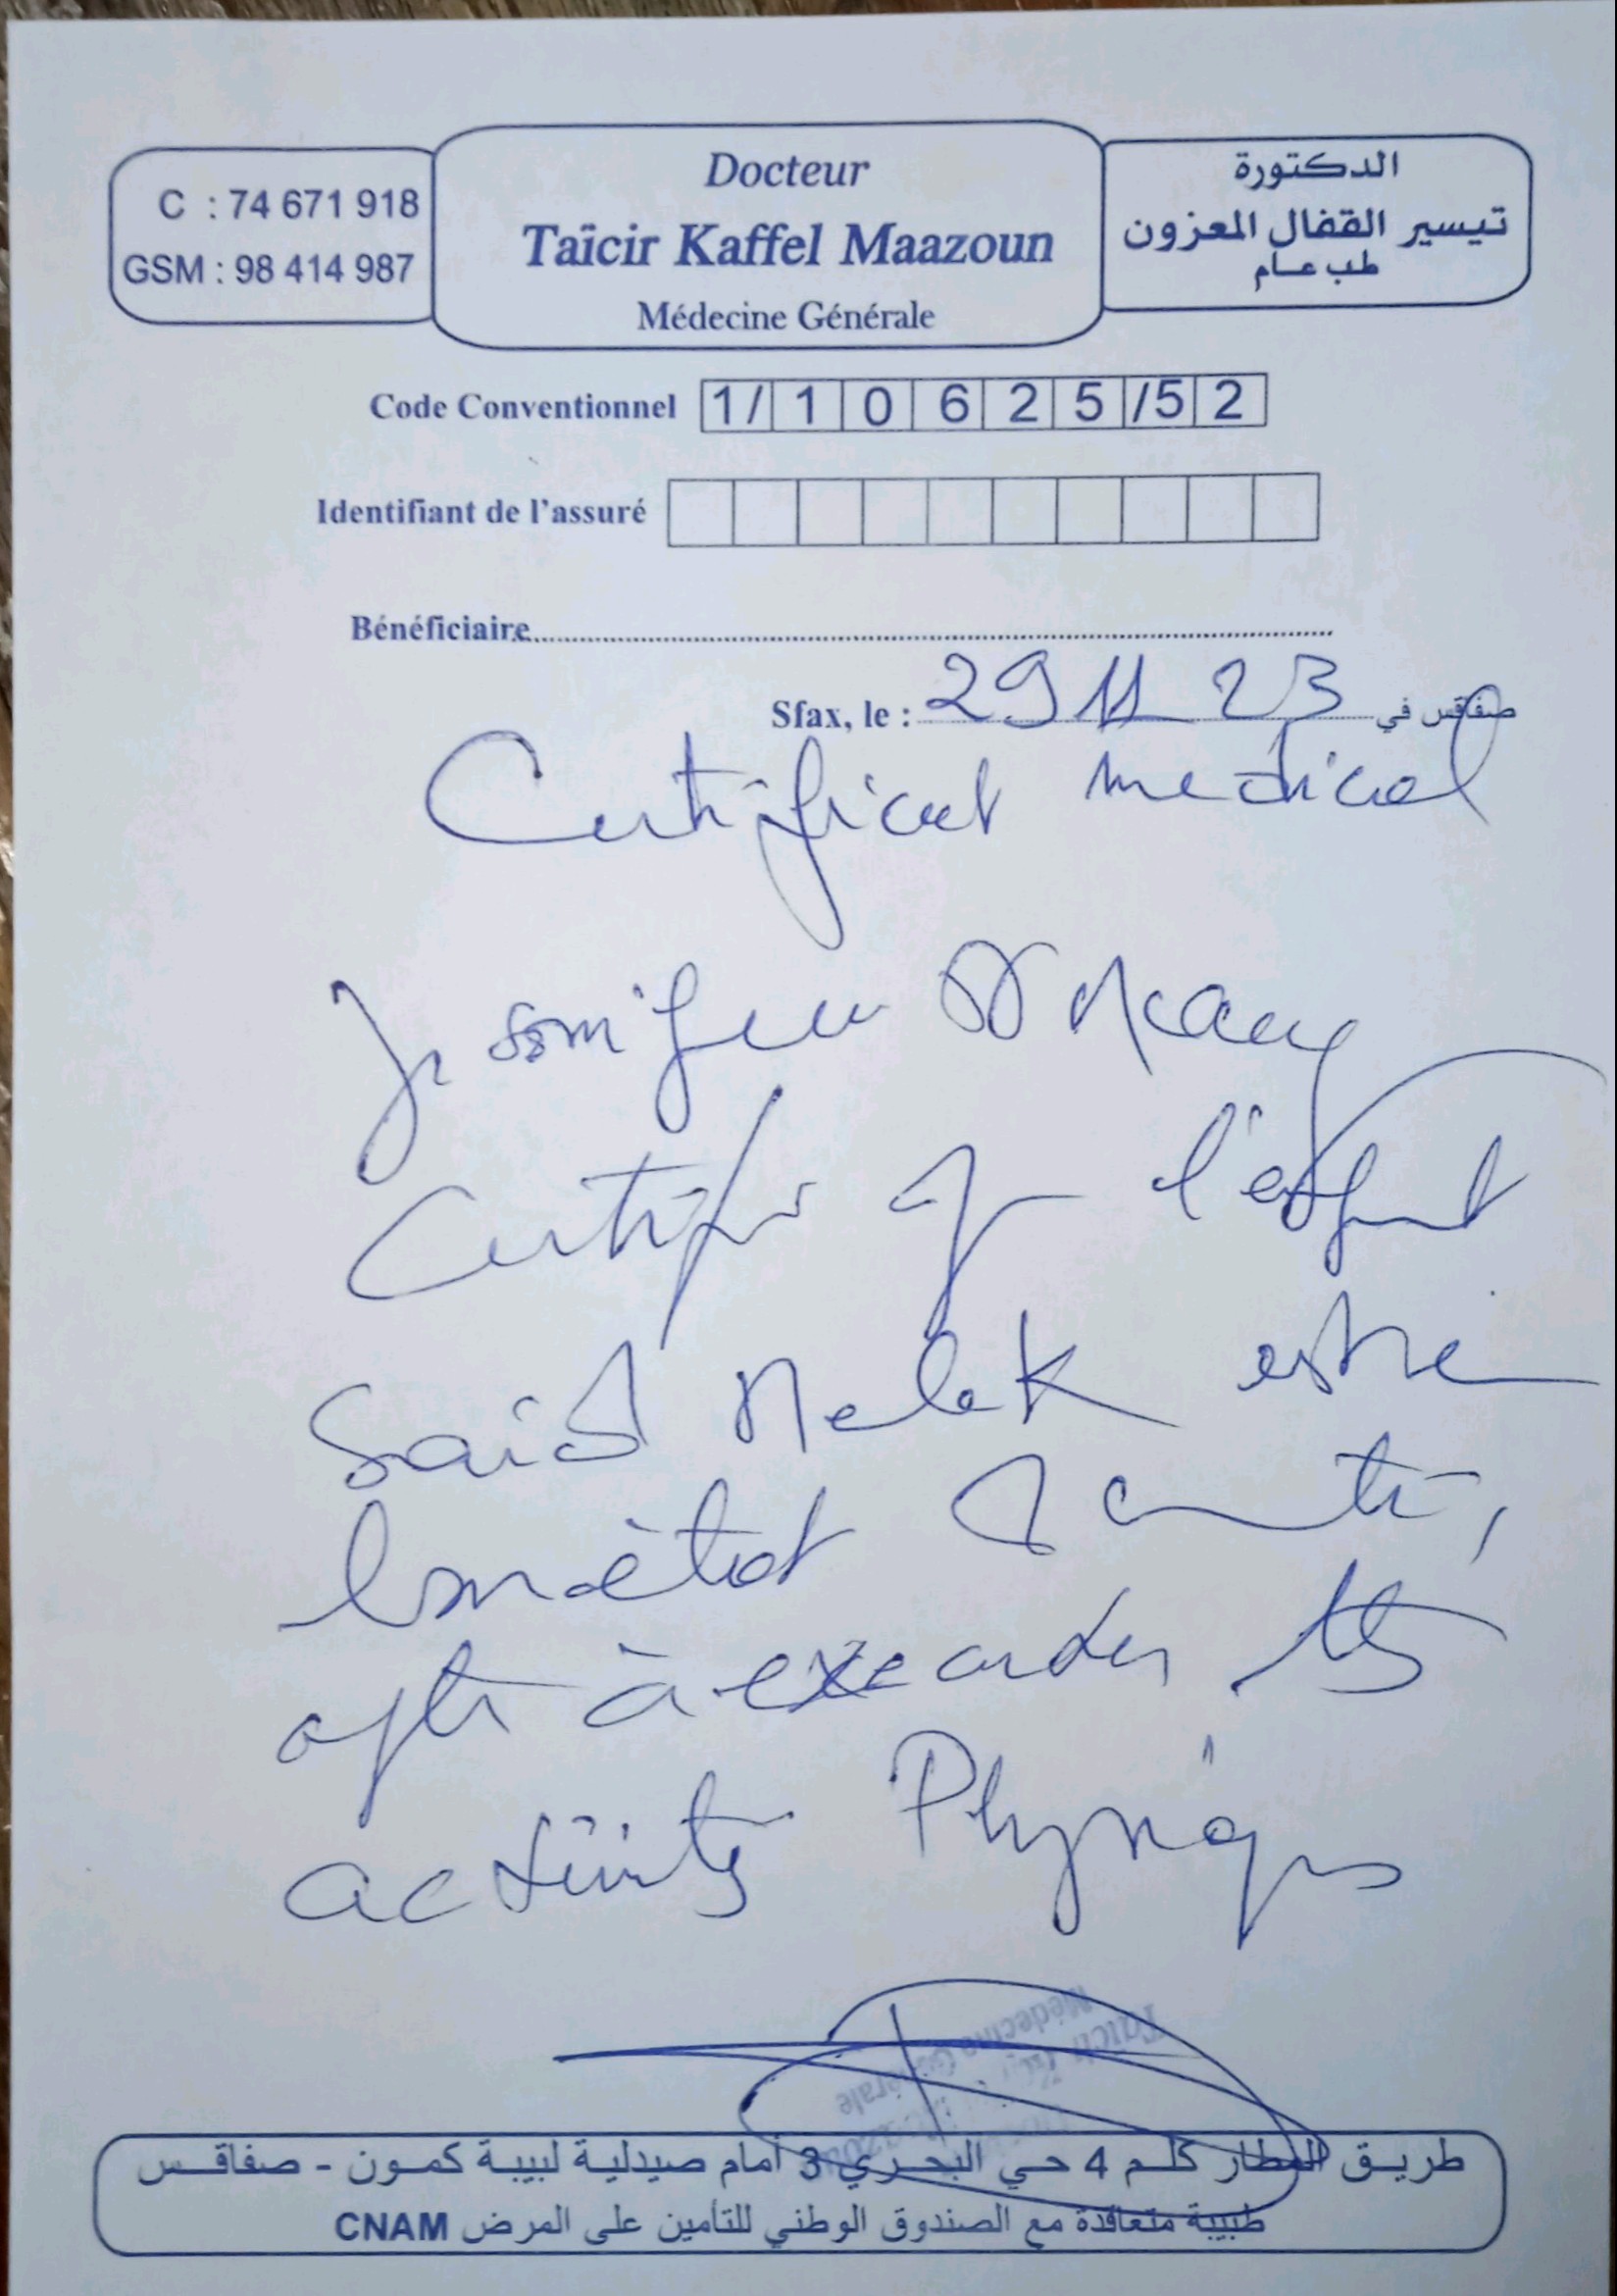 C : 74 671 918
GSM : 98 414 987
Docteur
Taïcir Kaffel Maazoun
Médecine Générale
الدكتورة
تيسير القفال المعزون
طب عام
Code Conventionnel 1/ 1 0 6 2 5 /5 2
Identifiant de l'assuré
Bénéficiaire
Sfax, le : 29 11 23 صفاقس في
Certificat medical
Je
Certifie que l'enfant
Said Melek est en
bon état de santé,
apte à
activités Physiques
Taïcir
Médecine Générale
طريق المطار كلم 4 حي البحري 3 أمام صيدلية لبيبة كمون - صفاقس
طبيبة متعاقدة مع الصندوق الوطني للتأمين على المرض CNAM